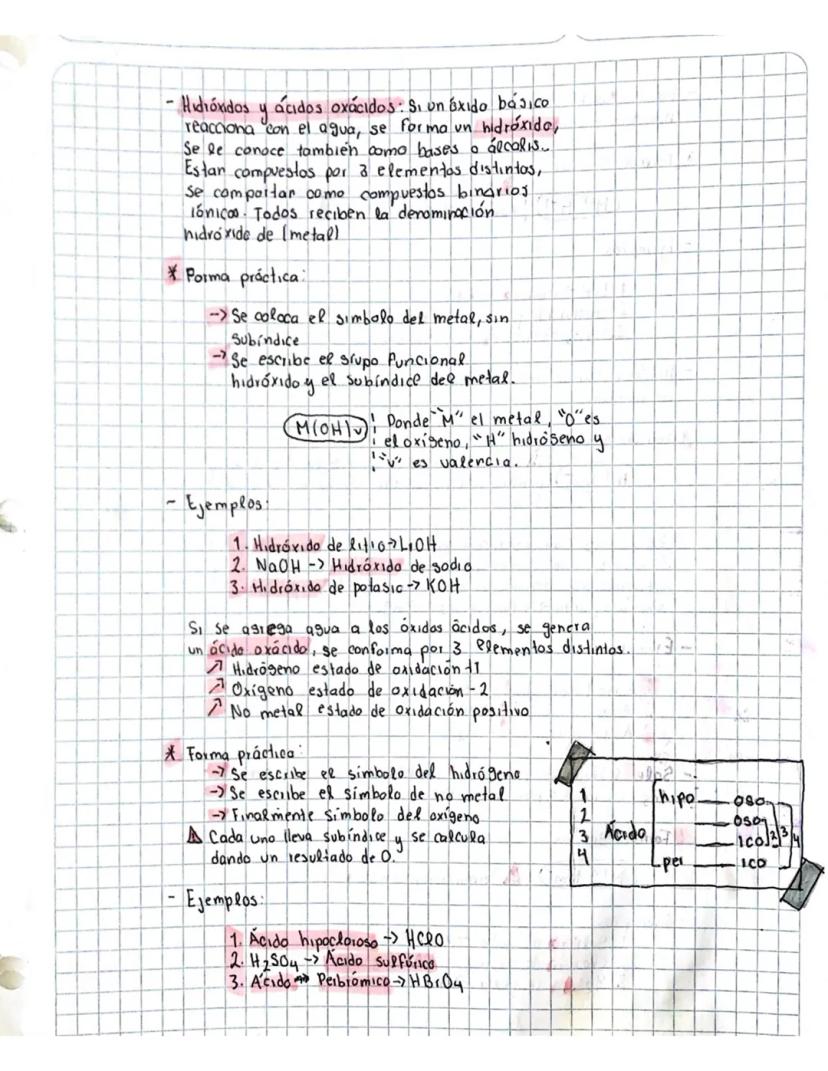 - Hidróxidos y ácidos oxácidos: Si un óxido básico
reacciona con el agua, se forma un hidróxido,
Se le conoce también como bases o álcalis.
Estan compuestos por 3 elementos distintos,
se comportar como compuestos binarios
iónicos. Todos reciben la denominación
hidróxido de (metal)
* Forma práctica:
-> Se coloca el simbolo del metal, sin
subíndice
-> Se escribe el grupo funcional
hidróxido y el subíndice del metal.
M(OH)v Donde "M" el metal, "O" es
el oxígeno, "H" hidrógeno y
"v" es valencia.
- Ejemplos:
1. Hidróxido de litio -> LiOH
2. NaOH -> Hidróxido de sodio
3. Hidróxido de potasio -> KOH
Si se agrega agua a los óxidos ácidos, se genera
un ácido oxácido, se conforma por 3 elementos distintos.
↗ Hidrógeno estado de oxidación +1
↗ Oxígeno estado de oxidación -2
↗ No metal estado de oxidación positivo
* Forma práctica:
-> Se escribe el símbolo del hidrógeno
-> Se escribe el símbolo de no metal
-> Finalmente simbolo del oxígeno
⚠ Cada uno lleva subíndice y se calcula
dando un resultado de 0.
1 hipo ___ oso
2 ___ oso
3 Ácido ___ ico 2 3 4
4 per ___ ico
- Ejemplos:
1. Ácido hipocloroso -> HClO
2. H₂SO₄ -> Ácido sulfúrico
3. Ácido Perbrómico -> HBrO₄